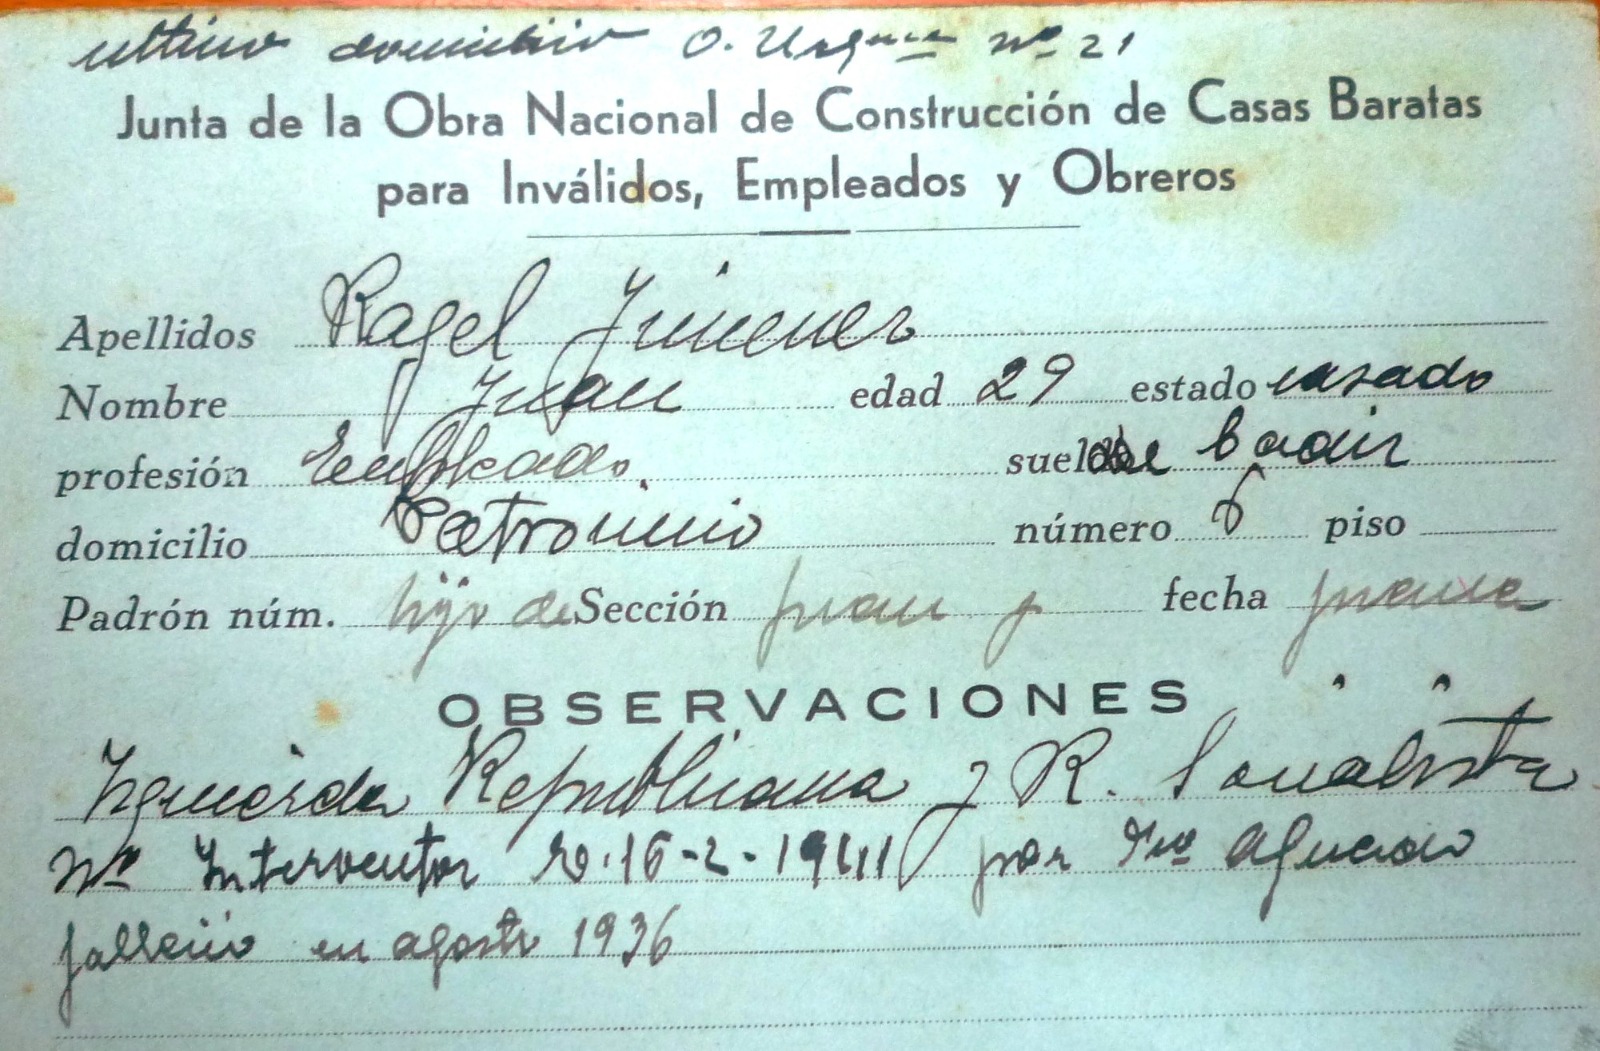 ultimo domicilio O. Urq nº 21
Junta de la Obra Nacional de Construcción de Casas Baratas
para Inválidos, Empleados y Obreros
Apellidos Ragel Jimenez
Nombre Juan edad 29 estado casado
profesión Empleado. sueldo de Cadiz
domicilio Patrocinio número 6 piso
Padrón núm. hijo de Sección Juan y fecha Juana
OBSERVACIONES
Izquierda Republicana y R. Socialista
Nº Interventor 16-2- por aguacio
fallecio en agosto 1936